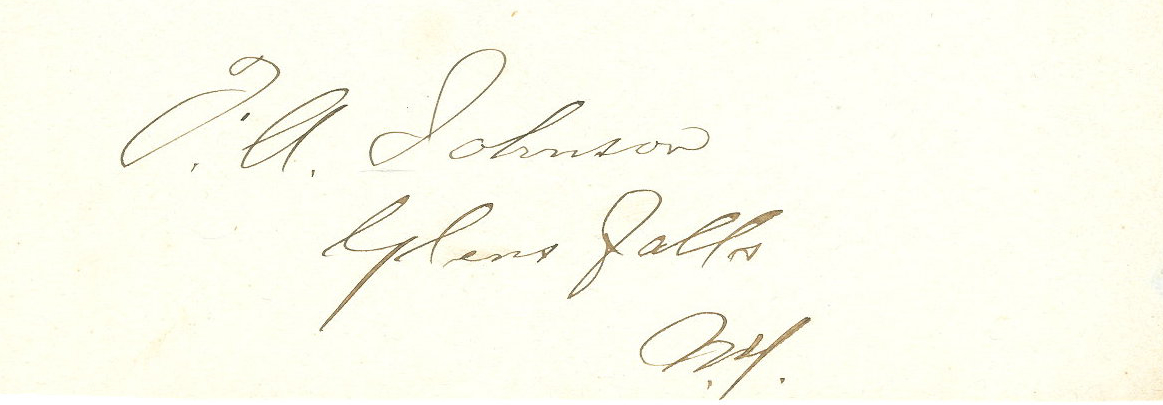 F. A. Johnson
Glens Falls
N.Y.